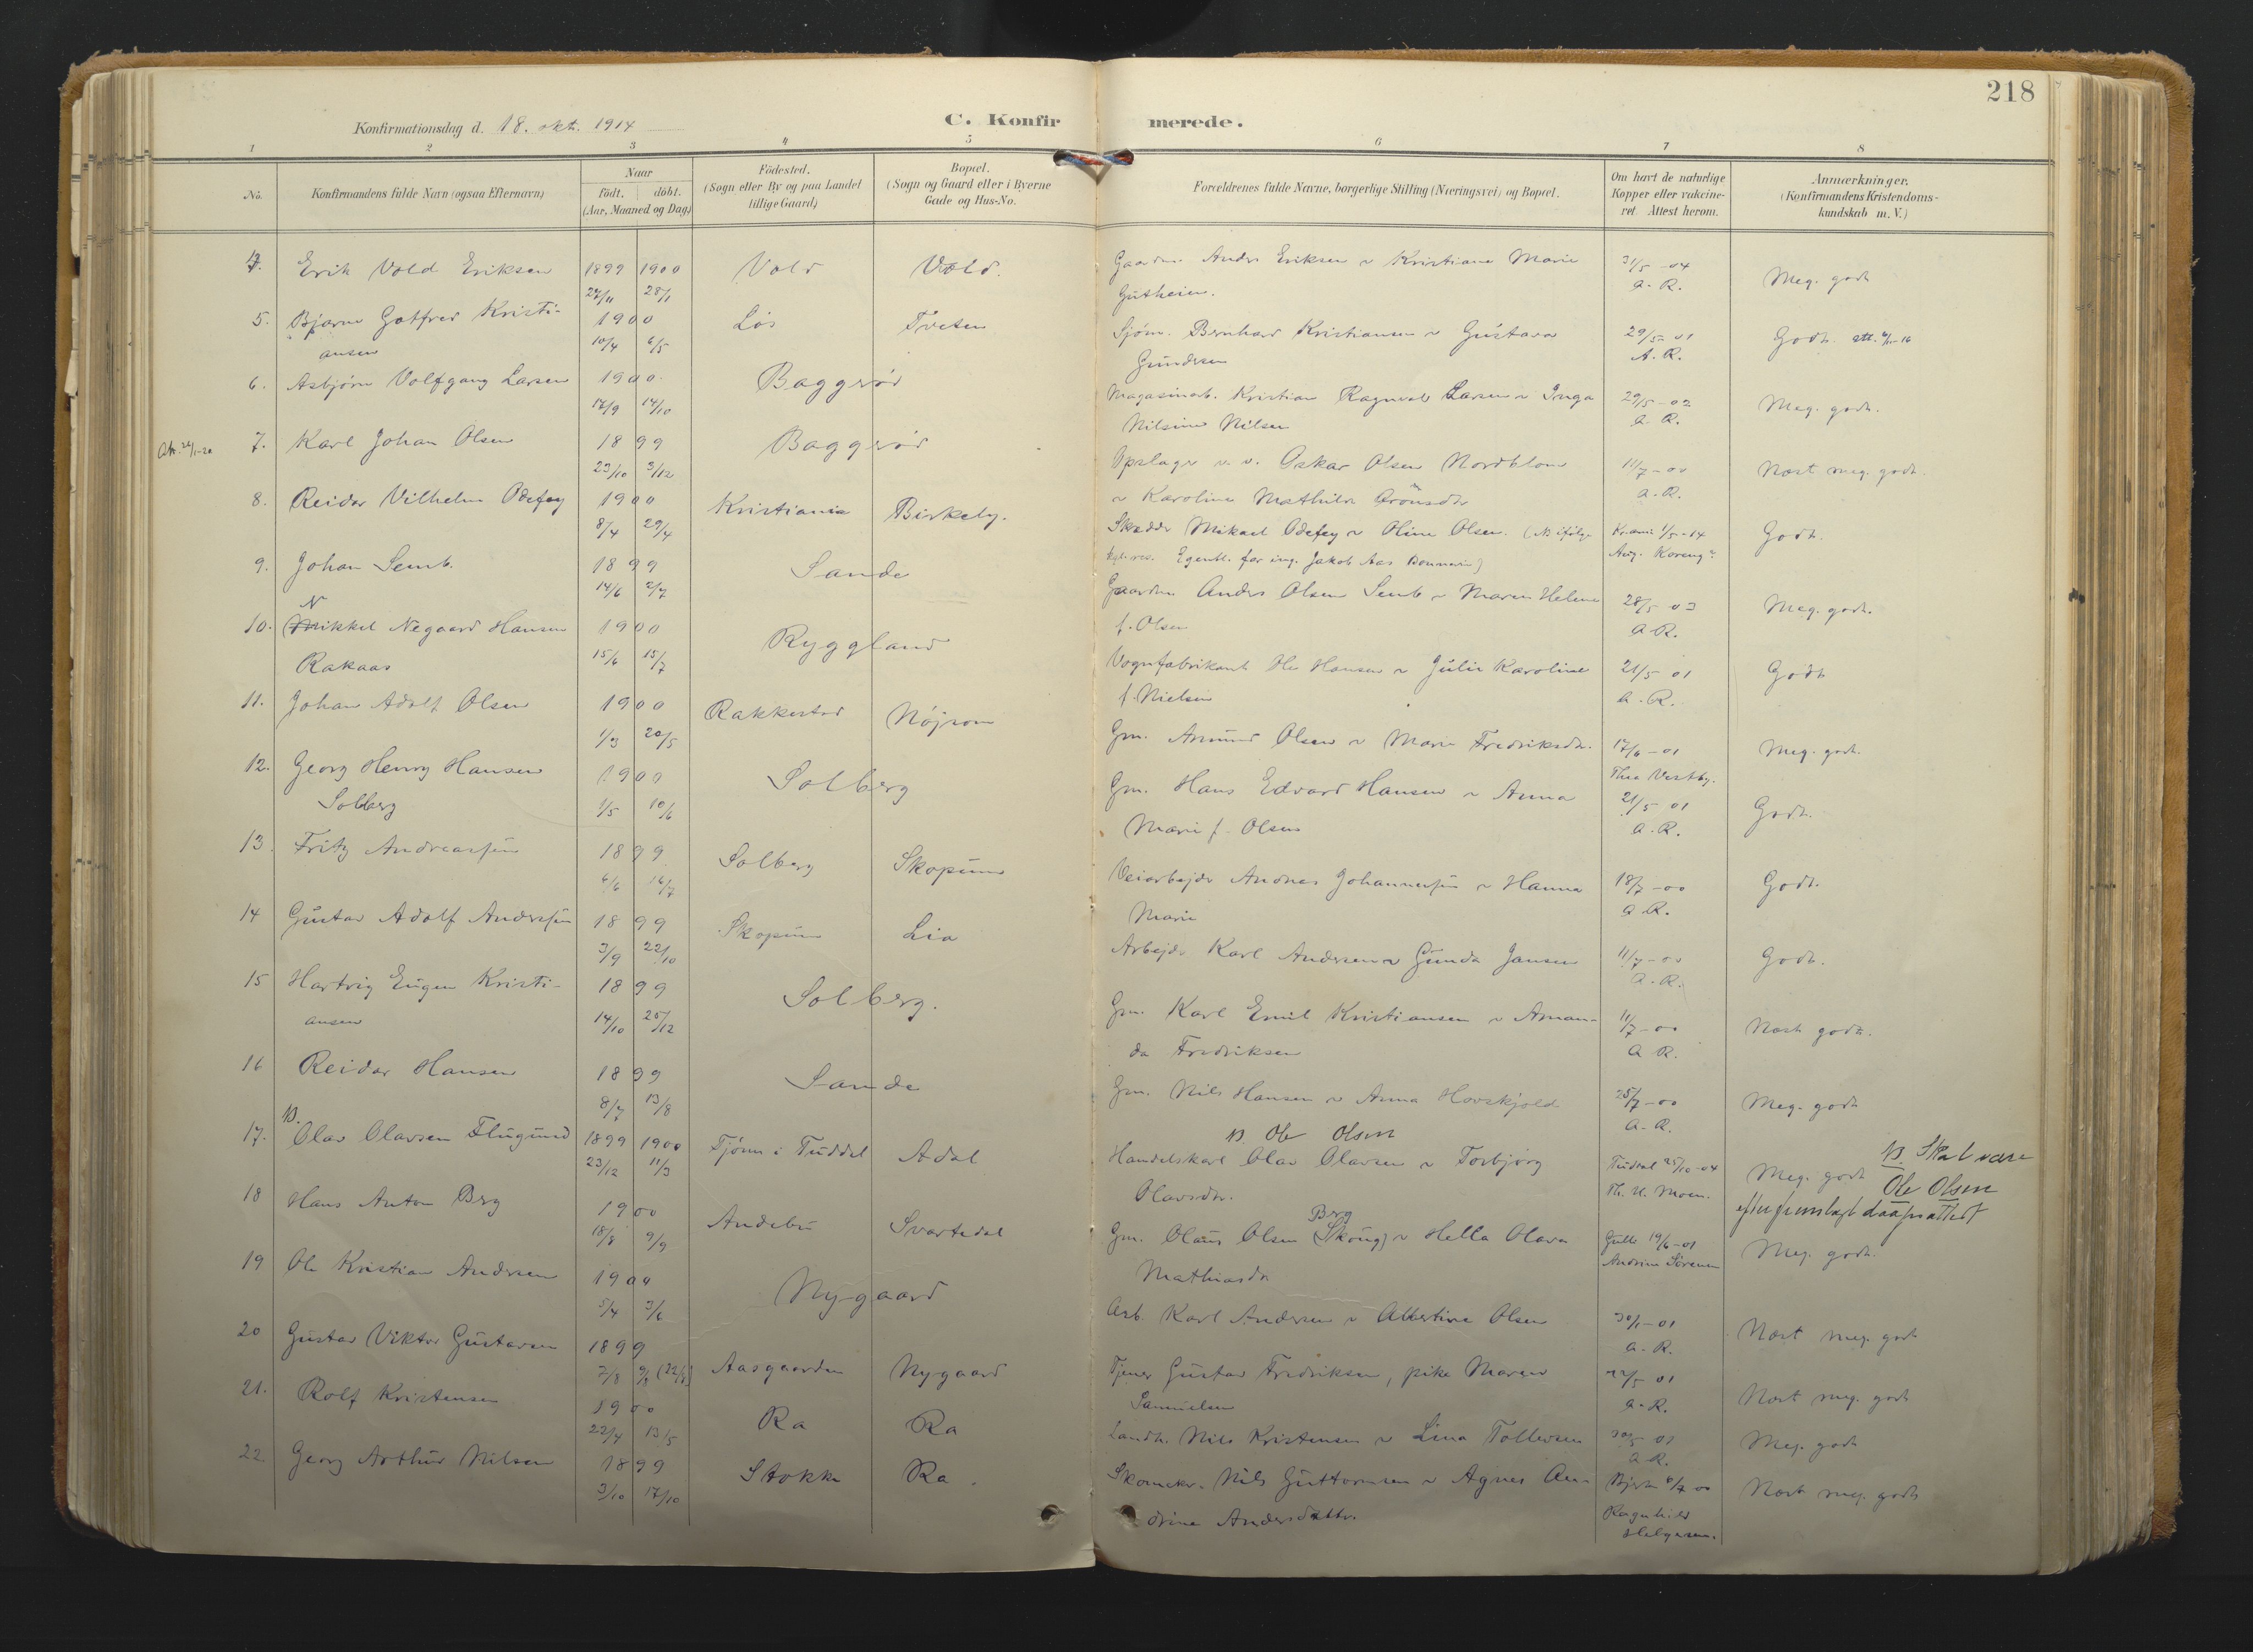 218
Konfirmationsdag d. 18. okt. 1914
C. Konfirmerede.
1 2 3 4 5 6 7 8
No.
Konfirmandens fulde Navn (ogsaa Efternavn)
Naar
födt. döbt.
(Aar, Maaned og Dag)
Födested.
(Sogn eller By og paa Landet
tillige Gaard)
Bopæl.
(Sogn og Gaard eller i Byerne
Gade og Hus-No.
Forældrenes fulde Navne, borgerlige Stilling (Næringsvei) og Bopæl.
Om havt de naturlige
Kopper eller vakcine-
ret. Attest herom.
Anmærkninger.
(Konfirmandens Kristendoms-
kundskab m. V.)
4. Erik Vold Eriksen 1899 1900 Vold Vold. Gaardm. Anders Eriksen & Kristiane Marie 31/5 -04 Meg. godt
28/1 Gutheim. A. R.
5. Bjarne Gotfred Kristi- 1900 Løs Tveten Sjøm. Bernhard Kristiansen & Gustava 29/5 - 01 Godt.
ansen 10/4 6/5 Gundersen A. R.
6. Asbjørn Volfgang Larsen 1900 Baggerød Magasinarb. Kristian Ragnvald Larsen & Inga 29/5 - 02 Meg. godt.
17/9 14/10 Nilsine Nilsen A. R.
7. Karl Johan Olsen 1899 Baggerød Opslager Oskar Olsen Nordblom 11/7 - 00 Næst meg. godt.
23/10 3/12 & Karoline Mathilde A. R.
8. Reidar Vilhelm Odefey 1900 Kristiania Birkely. Skrædder Mikael Odefey & Oline Olsen. (NB ifølge Kr.ania 1/5 -14 Godt.
8/4 29/4 kgl. res. Egentl. far ing. Jakob Aas Aug.
9. Johan Semb. 1899 Sande Gaardm. Anders Olsen Semb & Maren Helene 28/5 03 Meg. godt.
14/6 2/7 f. Olsen A. R.
N
10. Mikkel Negaard Hansen 1900 Ryggland Vognfabrikant Ole Hansen & Julie Karoline 21/5 01 Godt
Rakaas 15/6 15/7 f. Nielsen A. R.
11. Johan Adolf Olsen 1900 Rakkestad Nøjsom Gm. Amund Olsen & Marie Fredriksdtr. 17/6 -01 Meg. godt.
1/3 20/5 Thea Vestby.
12. Georg Henry Hansen 1900 Solberg Gm. Hans Edvard Hansen & Anna 21/5 01 Godt.
Solberg 1/5 10/6 Marie f. Olsen A. R.
13. Fritz Andreassen 1899 Solberg Skopum Veiarbejder Andreas Johannessen & Hanna 18/7 -00 Godt.
6/6 16/7 Marie A. R.
14 Gustav Adolf Anderssen 1899 Skopum Lia Arbejder Karl Andersen & Gunda Jansen 11/7 -00 Godt.
3/9 22/10 A. R.
15 Hartvig Eugen Kristi- 1899 Solberg. Gm. Karl Emil Kristiansen & Aman- 11/7 -00 Næst godt.
ansen 14/10 25/12 da Fredriksen A R.
16 Reidar Hansen 1899 Sande Gm. Nils Hansen & Anna Hovskjold 25/7 -00 Meg. godt
8/7 13/8 A. R.
NB. NB. Ole Olsen NB. Skal være
17. Olav Olavsen Flugund 1899 1900 Tjønn i Tuddal Adal Handelskarl Olav Olavsen & Torbjørg Tudal 25/10 -04 Meg. godt Ole Olsen
23/12 11/3 Olavsdtr. Th. H. Moen. efter fremlagt daapsattest
18 Hans Anton Berg 1900 Andebu Svartedal Gm. Olaus Olsen (Skoug) Berg & Hella Olava 19/6 -01 Meg. godt.
18/8 9/9 Mathiasdtr. Andrine Sørensen
19 Ole Kristian Andersen 1900 Nygaard Arb. Karl Andersen & Albertine Olsen 30/1 -01 Næst meg. godt
5/4 3/6 A. R.
20 Gustav Viktor Gustavsen 1899 Aasgaarden Nygaard Tjener Gustav Fredriksen, pike Maren 22/5 01 Næst meg. godt
7/8 Samuelsen A. R.
21. Rolf Kristensen 1900 Ra Ra Landh. Nils Kristensen & Lina Tollevsen 30/5 01 Meg. godt
22/4 13/5 A R.
22. Georg Arthur Nilsen 1899 Stokke Ra. Skomaker. Nils Guttormsen & Agnes An- 8/7 00 Næst meg. godt
3/10 17/10 drine Andersdatter. Ragnhild
Helgesen.